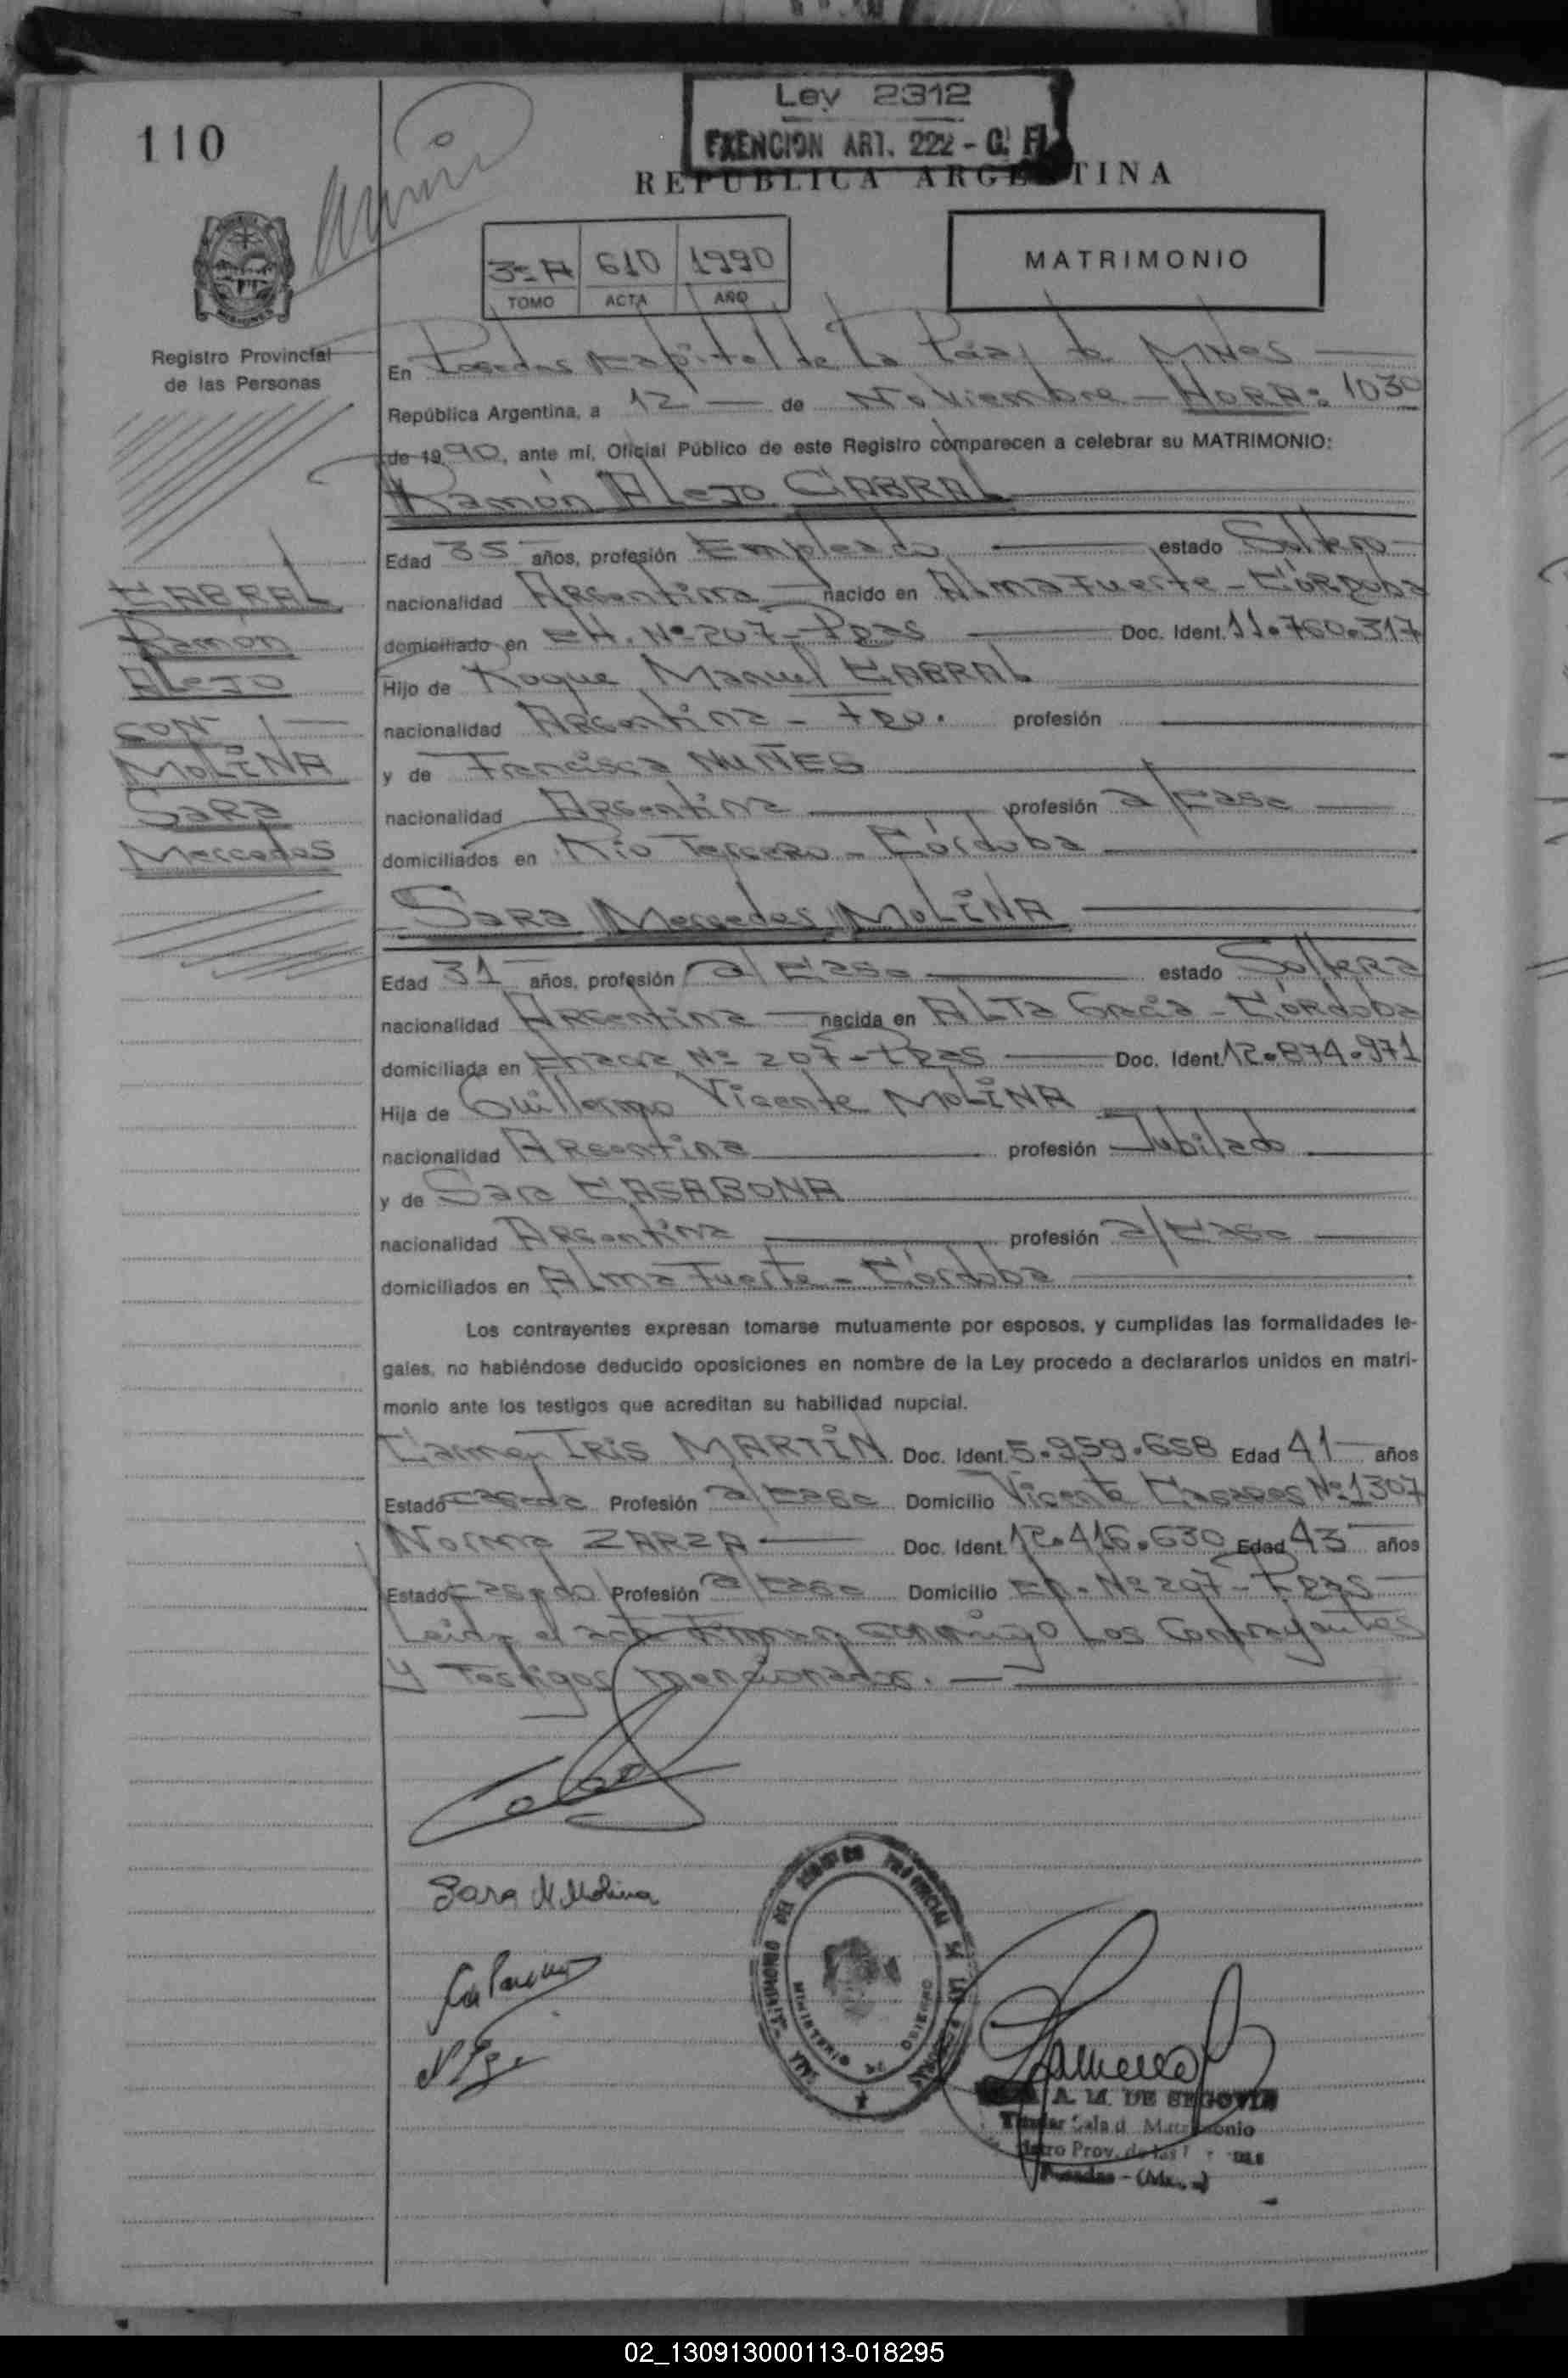 Ley 2312
EXENCION ART. 222 - C. F.
110
REPUBLICA ARGENTINA
3º A 610 1990
TOMO ACTA AÑO
MATRIMONIO
MISIONES
Registro Provincial
de las Personas
En Posadas Capital de La Pcia, de Mnes
República Argentina, a 12 de Noviembre - HORA: 1030
de 1990, ante mí, Oficial Público de este Registro comparecen a celebrar su MATRIMONIO:
Ramón Alejo CABRAL
Edad 35 años, profesión Empleado estado Soltero
nacionalidad Argentina nacido en Almafuerte - Córdoba
domiciliado en CH. Nº 207 - Pdas Doc. Ident. 11.760.317
Hijo de Roque Manuel CABRAL
nacionalidad Argentina - profesión
y de Francisca NUÑES
nacionalidad Argentina profesión a/casa
domiciliados en Río Tercero - Córdoba
CABRAL
Ramón
Alejo
CON
MOLINA
Sara
Mercedes
Sara Mercedes MOLINA
Edad 31 años, profesión a/casa estado Soltera
nacionalidad Argentina nacida en ALTa Gracia - Córdoba
domiciliada en Chacra Nº 207 - Pdas Doc. Ident. 12.874.971
Hija de Guillermo Vicente MOLINA
nacionalidad Argentina profesión Jubilado
y de Sara CASABONA
nacionalidad Argentina profesión a/casa
domiciliados en Alma Fuerte - Córdoba
Los contrayentes expresan tomarse mutuamente por esposos, y cumplidas las formalidades le-
gales, no habiéndose deducido oposiciones en nombre de la Ley procedo a declararlos unidos en matri-
monio ante los testigos que acreditan su habilidad nupcial.
Carmen Iris MARTIN Doc. Ident. 5.959.658 Edad 41 años
Estado casada Profesión a/casa Domicilio Vicente Casares Nº 1307
Norma ZARZA Doc. Ident. 12.416.630 Edad 43 años
Estado casada Profesión a/casa Domicilio Ch. Nº 207 - Pdas
Leida el acta Firman conmigo Los Contrayentes
y Testigos mencionados.
Sara M Molina
REGISTRO PROVINCIAL DE LAS PERSONAS
MINISTERIO DE GOBIERNO
A. M. DE SEGOVIA
Titular Sala d Matrimonio
Registro Prov. de las
Posadas - (Mnes.)
02_130913000113-018295